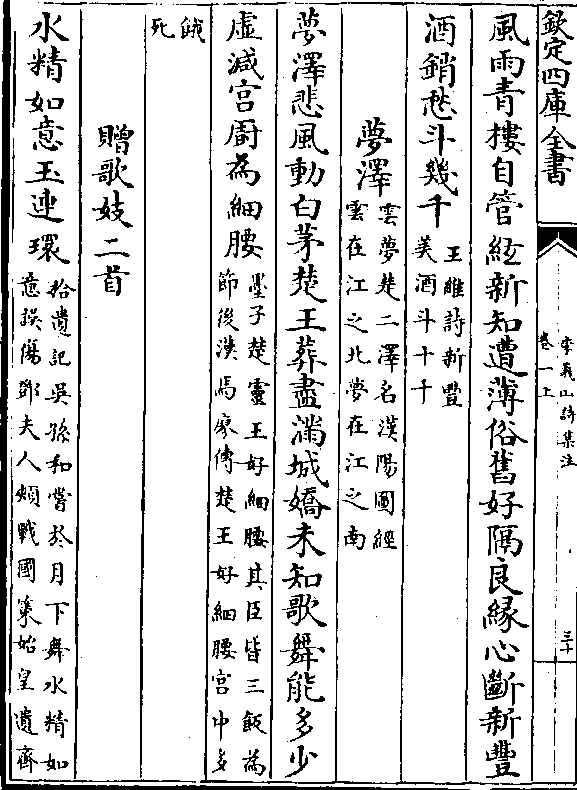 欽定四庫全書
李義山詩集注
卷一上
三十
風雨青樓自管絃新知遭薄俗舊好隔良緣心斷新豐
酒銷愁斗幾千
王維詩新豐
美酒斗十千
夢澤
雲夢楚二澤名漢陽圖經
雲在江之北夢在江之南
夢澤悲風動白茅楚王葬盡滿城嬌未知歌舞能多少
虛減宮廚為細腰
墨子楚靈王好細腰其臣皆三飯為
節後漢馬廖傳楚王好細腰宮中多
餓
死
贈歌妓二首
水精如意玉連環
拾遺記吳孫和嘗於月下舞水精如
意誤傷鄧夫人頰戰國策始皇遺齊